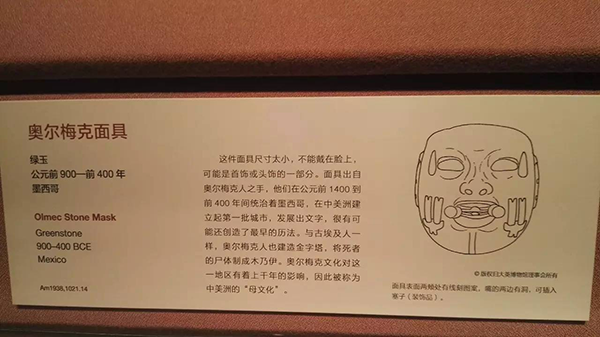 奥尔梅克面具
绿玉
公元前 900—前 400 年
墨西哥
Olmec Stone Mask
Greenstone
900–400 BCE
Mexico
Am1938,1021.14
这件面具尺寸太小，不能戴在脸上，
可能是首饰或头饰的一部分。面具出自
奥尔梅克人之手，他们在公元前 1400 到
前 400 年间统治着墨西哥，在中美洲建
立起第一批城市，发展出文字，很有可
能还创造了最早的历法。与古埃及人一
样，奥尔梅克人也建造金字塔，将死者
的尸体制成木乃伊。奥尔梅克文化对这
一地区有着上千年的影响，因此被称为
中美洲的“母文化”。
© 版权归大英博物馆理事会所有
面具表面两颊处有线刻图案，嘴的两边有洞，可插入
塞子（装饰品）。